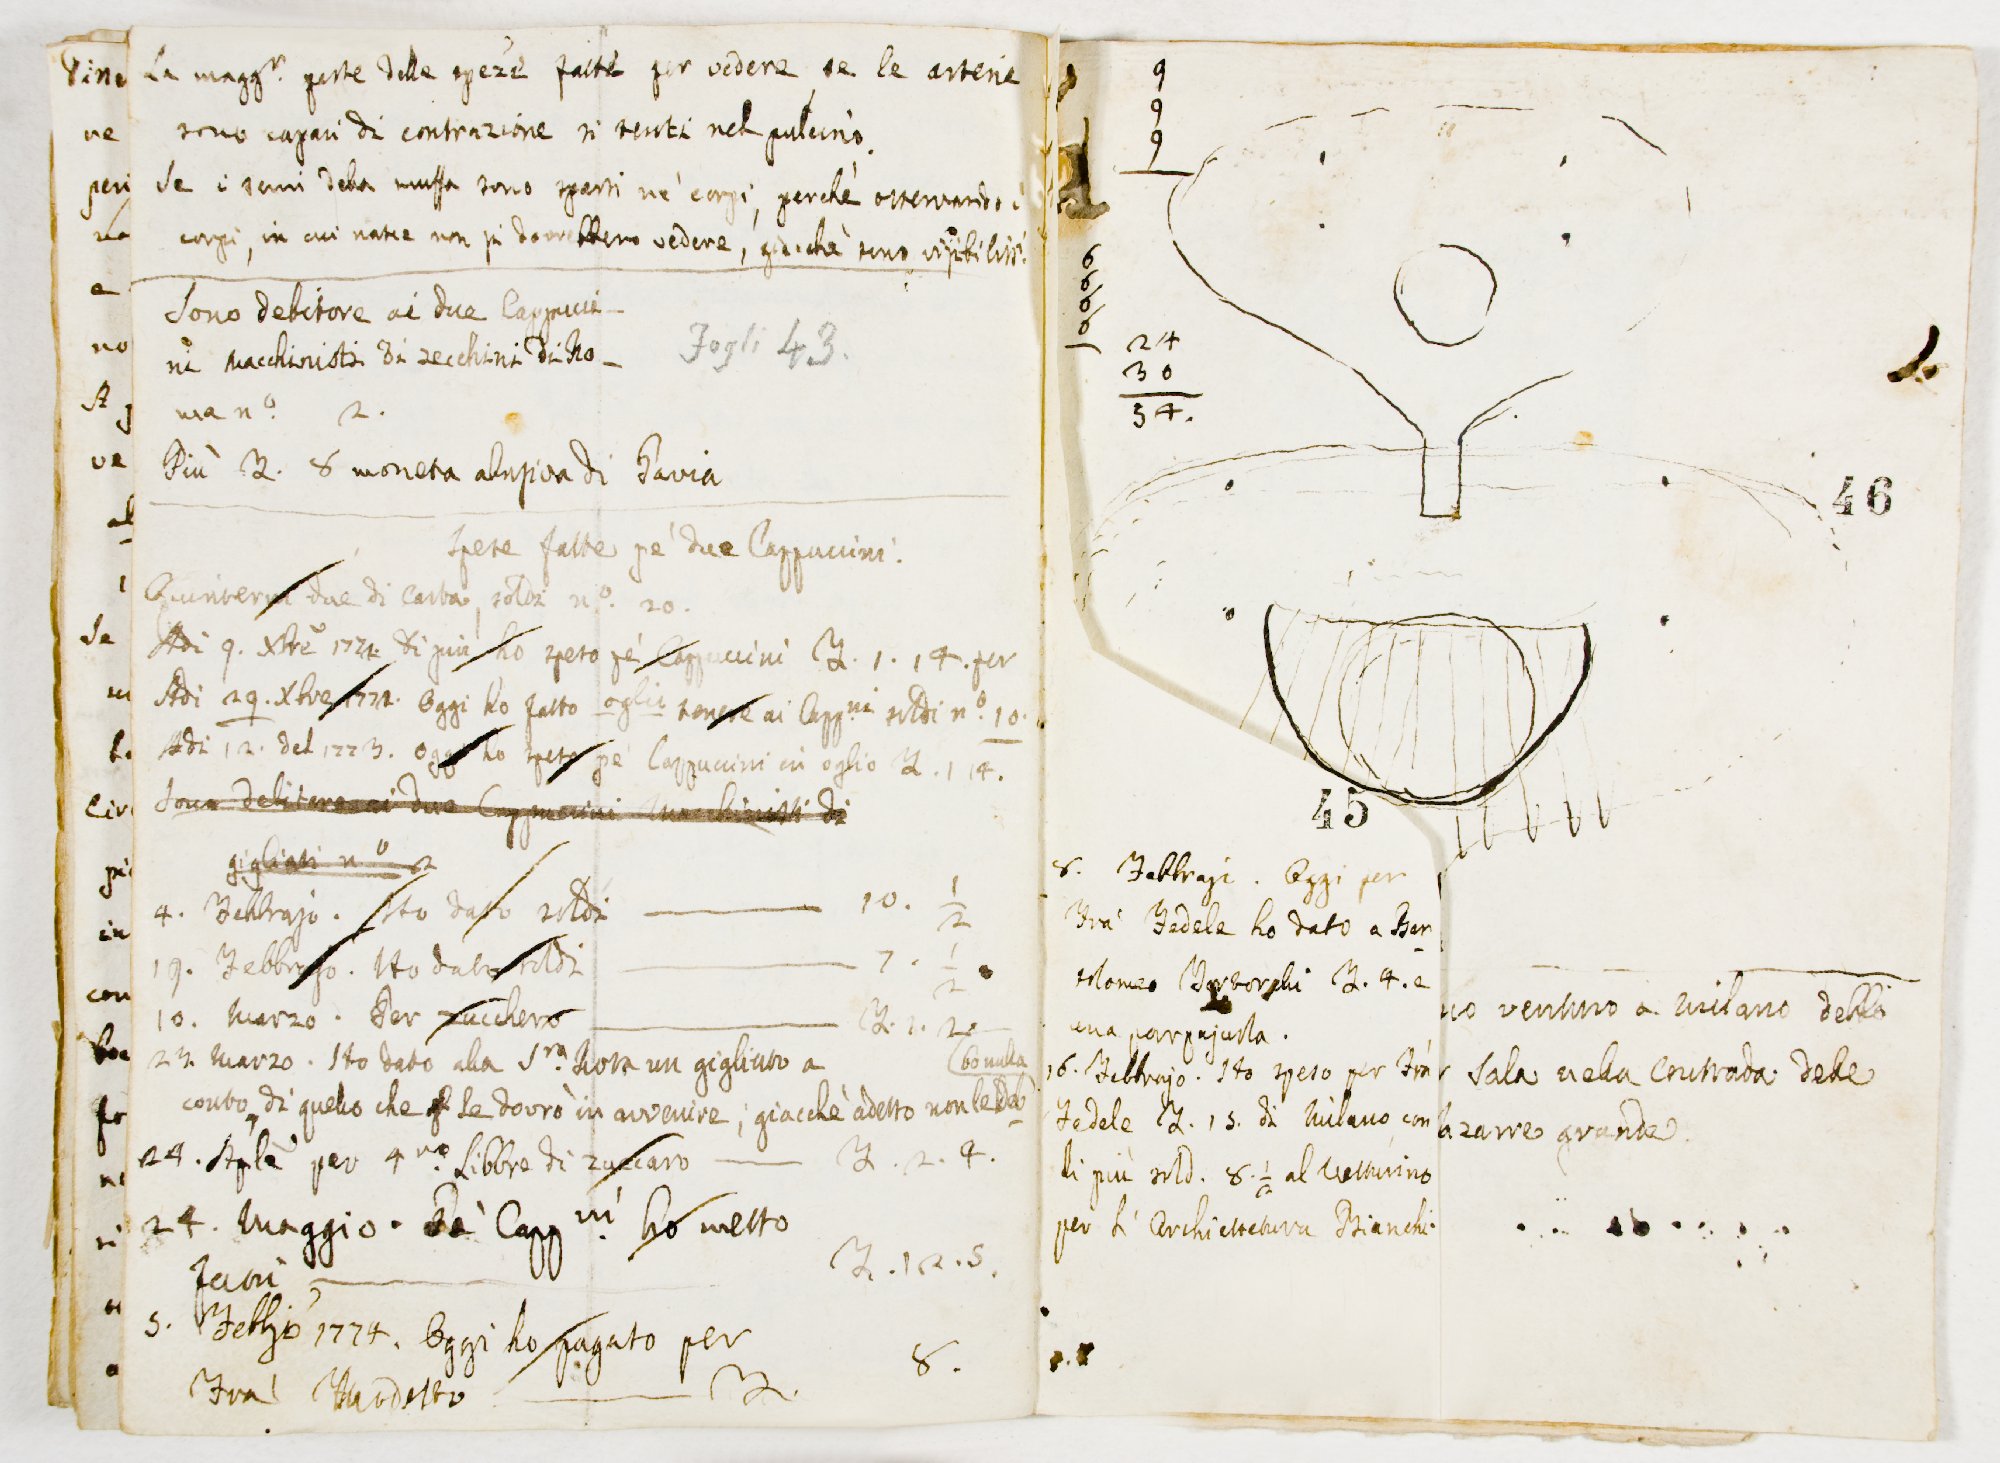 La magg.r parte delle speze fatte per vedere se le arterie
sono capaci di contrazione si tenti nel pulcino.
Se i semi della muffa sono sparsi ne' corpi, perchè osservando i
corpi, in cui nasce non si dovrebbero vedere, giacchè sono visibiliss.i
Sono debitore ai due Cappucci-
ni Macchinisti di zecchini di Ro-
ma n.o 2.
Fogli 43.
Più L. 8 moneta abusiva di Pavia
Spese fatte pe' due Cappuccini.
Quinterni due di carta, soldi n.o 20.
Adi 9. Xbre 1772. di più ho speso pe' Cappuccini L. 1. 14. per
oglio
Adi 29. Xbre 1772. Oggi ho fatto tenere ai Capp.ni soldi n.o 10.
Adi 12. del 1773. Oggi ho speso pe' Cappuccini in oglio L. 1 14.
Sono debitore ai due Cappuccini Macchinisti di
gigliati n.o 2
4. Febbrajo. Ho dato soldi 10. 1/2
19. Febbrajo. Ho dato soldi 7. 1/2
10. Marzo. Per zucchero L. 1. 2.
23. Marzo. Ho dato alla S.ra Rosa un gigliato a
conto di quello che le dovrò in avvenire; giacchè adesso non le debbo nulla
24. Aple per 4 Libbre di zuccaro L. 2. 4.
24. Maggio. Pe' Capp.ni ho messo
fuori L. 12. 5.
5. Febbjo 1774. Oggi ho pagato per
Fra' L. 8.
9
9
9
9
9
9
9
24
30
54.
46
45
8. Febbraji. Oggi per
Fra' Fedele ho dato a Bar
tolomeo L. 4. e
una parpajuola.
16. Febbrajo. Ho speso per Fra'
Fedele L. 15. di Milano, con
di più sold. 8. 1/2 al Vetturino
per l' Architettura Bianchi.
no venuno a Milano della
Sala nella Contrada delle
azarre grande.